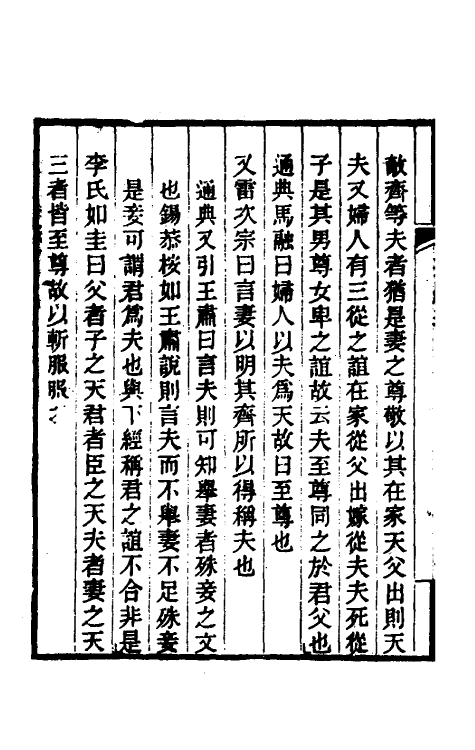 敵齊等夫者猶是妻之尊敬以其在家天父出則天
夫又婦人有三從之誼在家從父出嫁從夫夫死從
子是其男尊女卑之誼故云夫至尊同之於君父也
通典馬融曰婦人以夫爲天故曰至尊也
又雷次宗曰言妻以明其齊所以得稱夫也
通典又引王肅曰言夫則可知舉妻者殊妾之文
也錫恭桉如王肅說則言夫而不舉妻不足殊妾
是妾可謂君爲夫也與下經稱君之誼不合非是
李氏如圭曰父者子之天君者臣之天夫者妻之天
三者皆至尊故以斬服服之